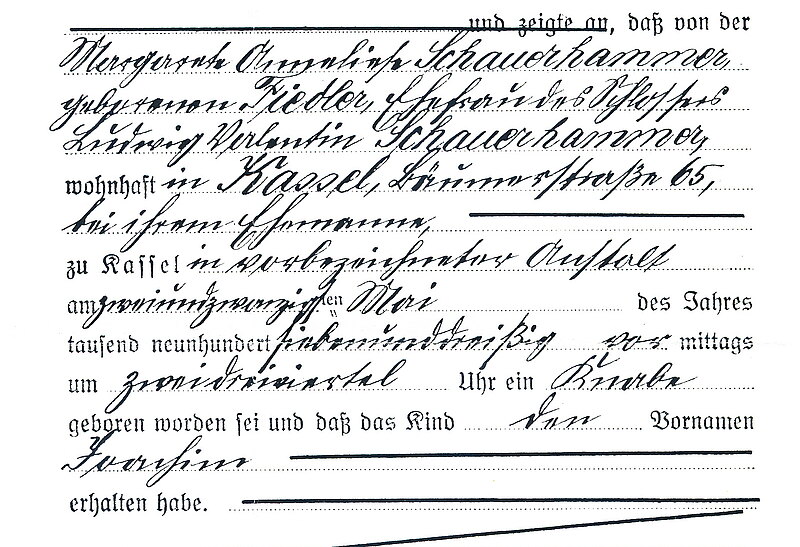 und zeigte an, daß von der
Margarete Anneliese Schauerhammer,
geborenen Fiedler, Ehefrau des Schlossers
Ludwig Valentin Schauerhammer,
wohnhaft in Kassel, Bäumerstraße 65,
bei ihrem Ehemanne,
zu Kassel in vorbezeichneter Anstalt
am zweiundzwanzigsten ten Mai des Jahres
tausend neunhundert siebenunddreißig vor mittags
um zweidreiviertel Uhr ein Knabe
geboren worden sei und daß das Kind den Vornamen
Joachim
erhalten habe.